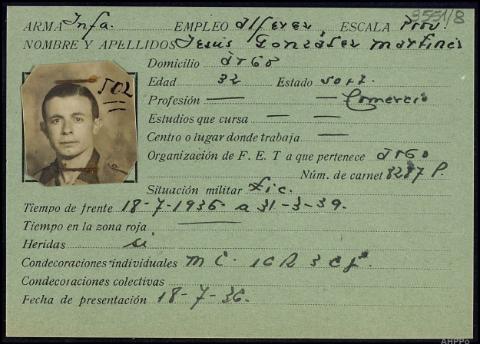 3551/8
ARMA Infa. EMPLEO alferez ESCALA Prov.
NOMBRE Y APELLIDOS Jesús González Martínez
Domicilio
Edad 32 Estado solt.
Profesión — — Comercio
Estudios que cursa — —
Centro o lugar donde trabaja —
Organización de F. E. T a que pertenece
Núm. de carnet 8287 P.
Situación militar Lic.
Tiempo de frente 18-7-1936 a 31-3-39.
Tiempo en la zona roja —
Heridas si
Condecoraciones individuales M C. 1 C R 3 C
Condecoraciones colectivas
Fecha de presentación 18-7-36.
502
AHPPo